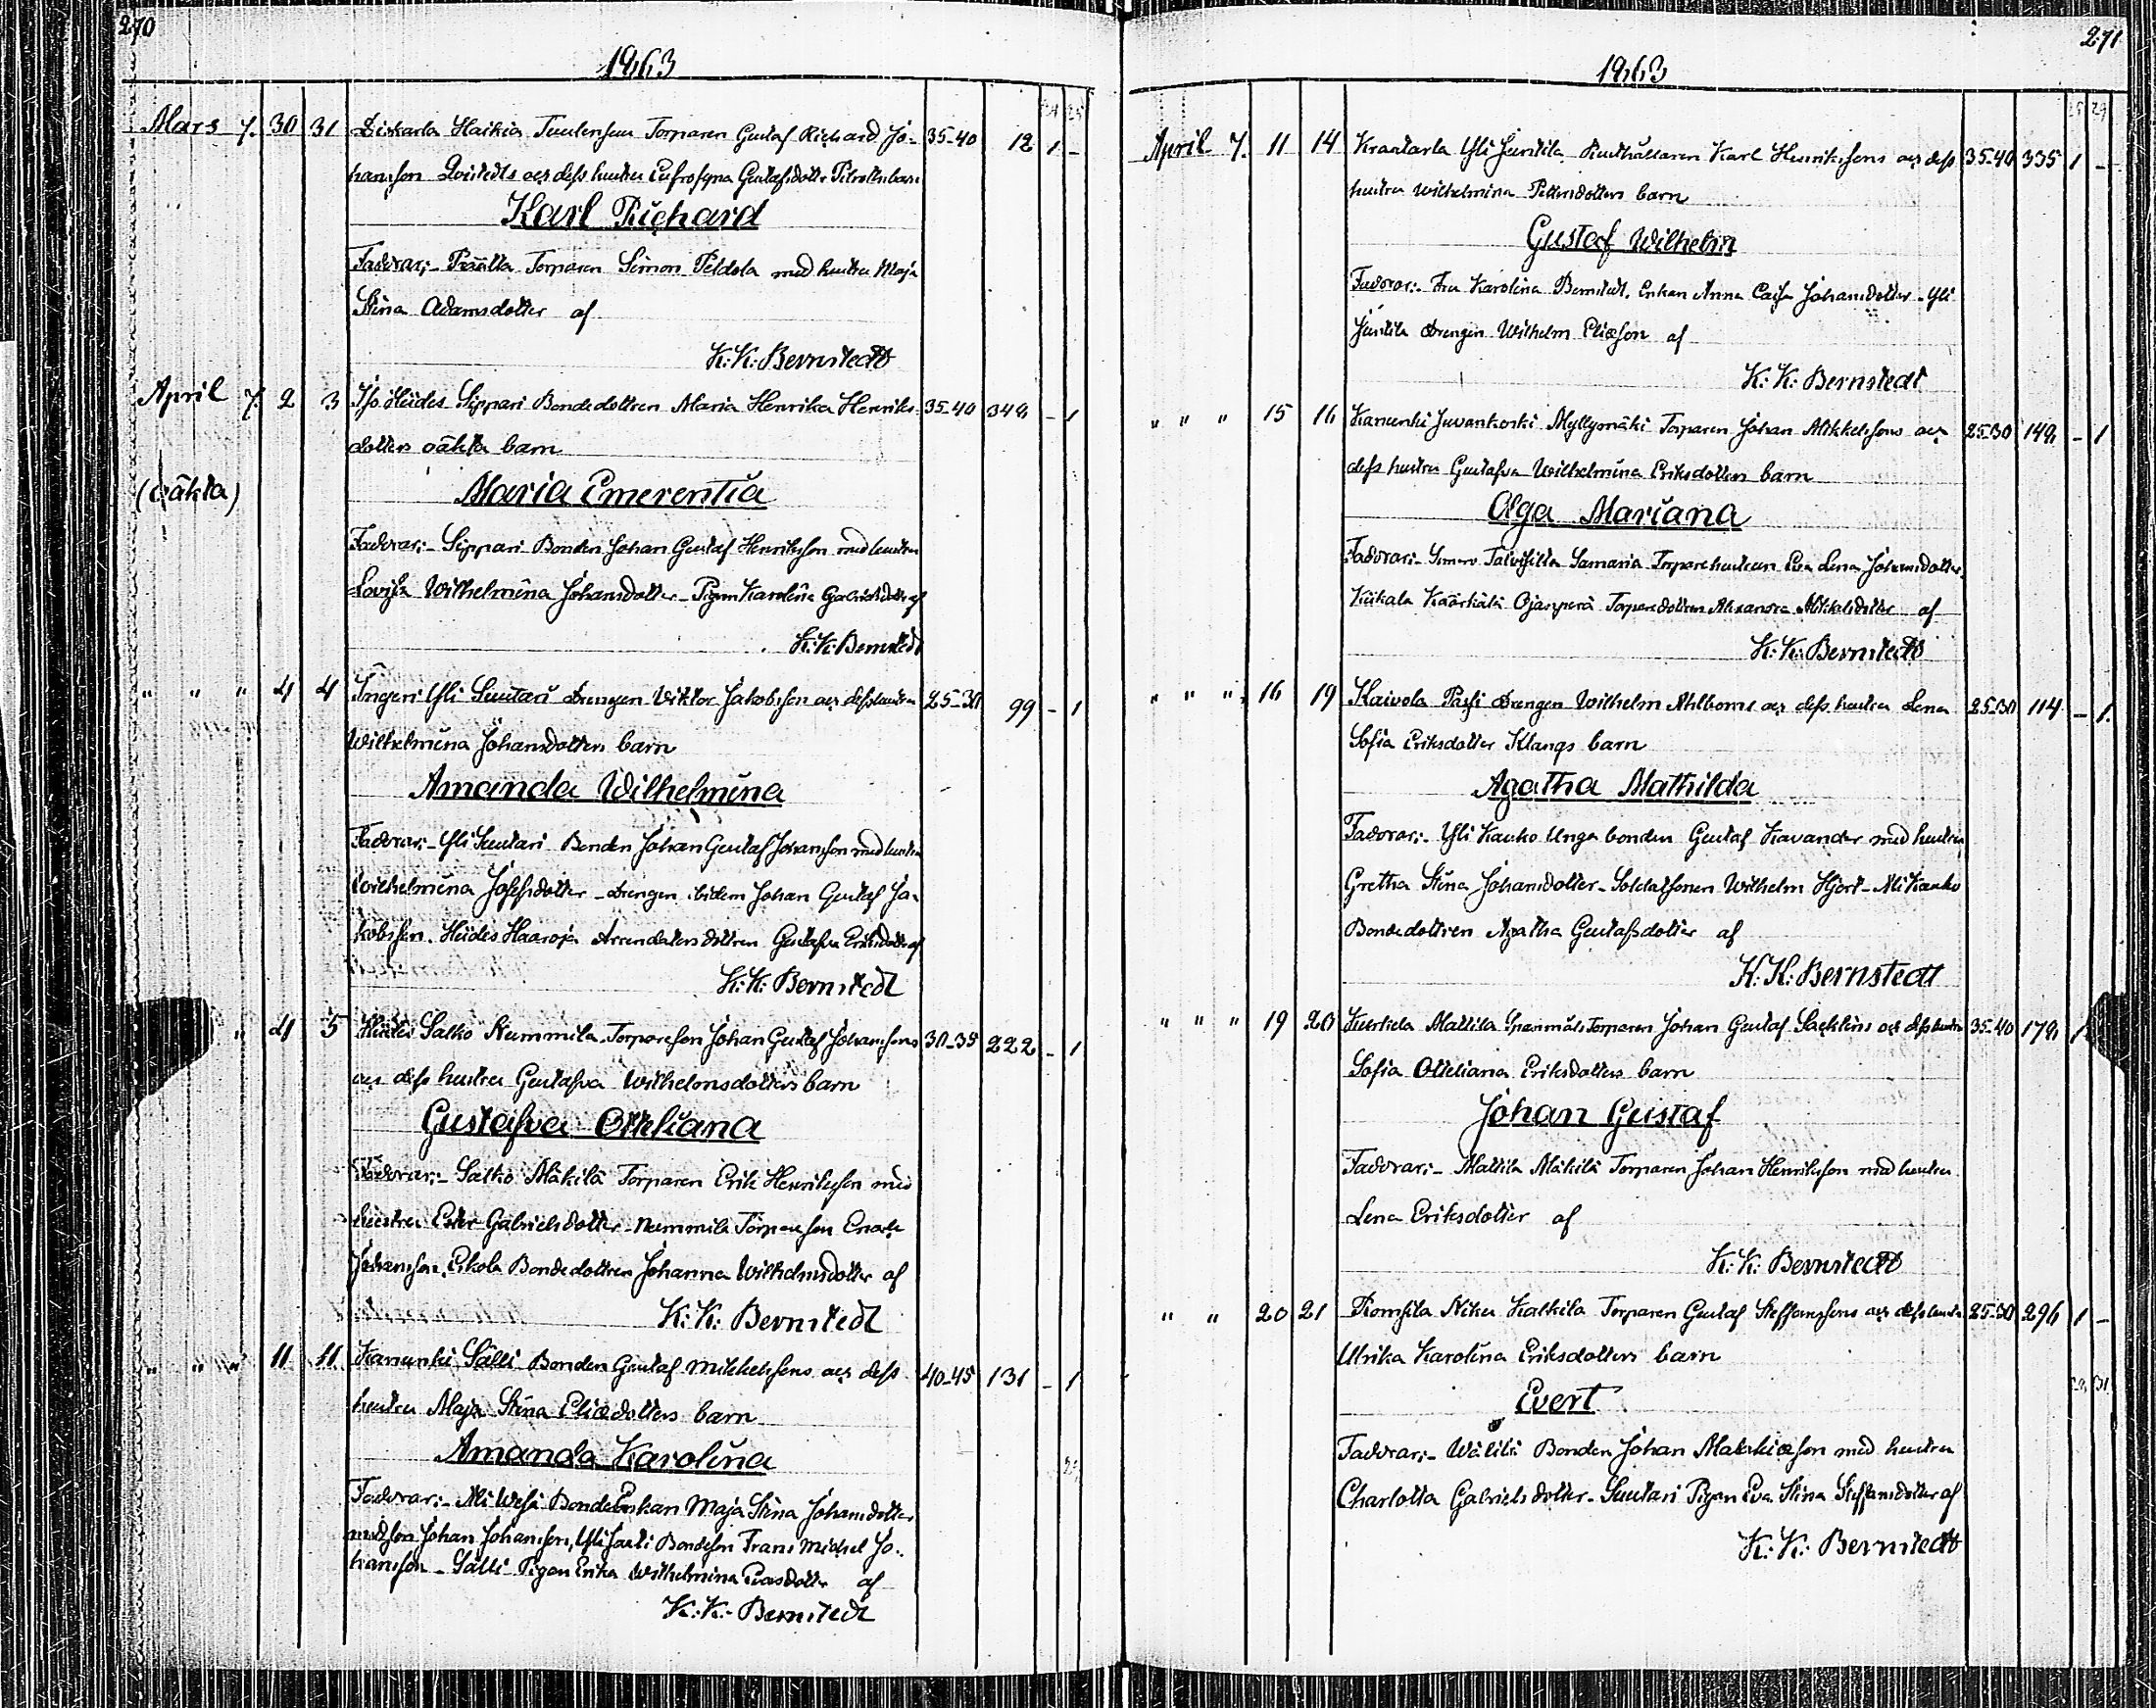 270
1863
Mars 7. 30 31 Haikia Torparen Gustaf Richard Jo- 35-40 12 1 -
hansson Qvistedts och dess hustru Eufrosyna Gustafsdotter barn
Karl Richard
Faddrar:- Torparen Simon Peldola med hustru Maja
Stina Adamsdotter af
K:K: Bernstedt
April 7. 2 3 Iso Hiides Sippari Bondedottren Maria Henrika Henriks- 35-40 348 - 1
dotters oäkta barn
(oäkta) Maria Emerentia
Faddrar:- Sippari Bonden Johan Gustaf Henriksson med hustru
Lovisa Wilhelmina Johansdotter - Pigan Karolina Gabrielsdotter af
K:K: Bernstedt
" " " 4 4 Yli Suutari Drengen Viktor Jakobsson och dess hustru 25-30 99 - 1
Wilhelmina Johansdotters barn
Amanda Wilhelmina
Faddrar:- Yli Suutari Bonden Johan Gustaf Johansson med hustru
Wilhelmina Josefsdotter - Drengen ibidem Johan Gustaf Ja-
kobsson. Hiides Haaroja Arrendators dottren Gustafva Eriksdotter af
K:K: Bernstedt
" 4 5 Hiides Satko Nummila Torpareson Johan Gustaf Johanssons 30-35 222 - 1
och dess hustru Gustafva Wilhelmsdotters barn
Gustafva Otteliana
Faddrar:- Satko Mäkilä Torparen Erik Henriksson med
hustru Ester Gabrielsdotter - Nummila Torpareson Enok
Johansson, Eskola Bondedottren Johanna Wilhelmsdotter af
K:K: Bernstedt
" " " 11 11 Kanunki Sälli Bonden Gustaf Mikkelssons och dess 40-45 131 - 1
hustru Maja Stina Eliædotters barn
Amanda Karolina
Faddrar:- Ali Wesi Bonde Enkan Maja Stina Johansdotter
med son Johan Johansson, Yli Jouti Bondeson Frans Michel Jo-
hansson - Sälli Pigan Erika Wilhelmina dotter af
K:K: Bernstedt
271
1863
April 7. 11 14 Yli Juntila Rusthållaren Karl Henrikssons och dess 35-40 335 1 -
hustru Wilhelmina Pettersdotters barn
Gustaf Wilhelm
Faddrar:- Fru Karolina Bernstedt. Enkan Anna Caisa Johansdotter - Yli
Juntila Drengen Wilhelm Eliæson af
K: K: Bernstedt
" " " 15 16 Kanunki Juvankoski Myllymäki Torparen Johan Mikkelssons och 25-30 148 - 1
dess hustru Gustafva Wilhelmina Eriksdotters barn
Olga Mariana
Faddrar:- Somero Talvisilta Samaria Torparehustrun Eva Lena Johansdotter.
Kiikala Kärkälä Ojanperä Torparedottren Alexandra Mikkelsdotter af
K: K: Bernstedt
" " " 16 19 Kaivola Passi Drengen Wilhelm Ahlboms och dess hustru Lena 25-30 114 - 1.
Sofia Eriksdotter Klangs barn
Agatha Mathilda
Faddrar:- Yli Kauko Unga bonden Gustaf Kavander med hustru
Gretha Stina Johansdotter - Soldatsonen Wilhelm Hjort - Ali Kauko
Bondedottren Agatha Gustafsdotter af
K: K: Bernstedt
" " " 19 20 Mattila Torparen Johan Gustaf Sacklins och dess hustru 35-40 178 1
Sofia Otteliana Eriksdotters barn
Johan Gustaf
Faddrar:- Mattila Mäkilä Torparen Johan Henriksson med hustru
Lena Eriksdotter af
K: K: Bernstedt
" " 20 21 Romsila Niku Kalkila Torparen Gustaf Steffanssons och dess hustru 25-30 296 1 -
Ulrika Karolina Eriksdotters barn
Evert
Faddrar:- Wälilä Bonden Johan Mathiæson med hustru
Charlotta Gabrielsdotter - Suutari Pigan Eva Stina Steffansdotter af
K: K: Bernstedt